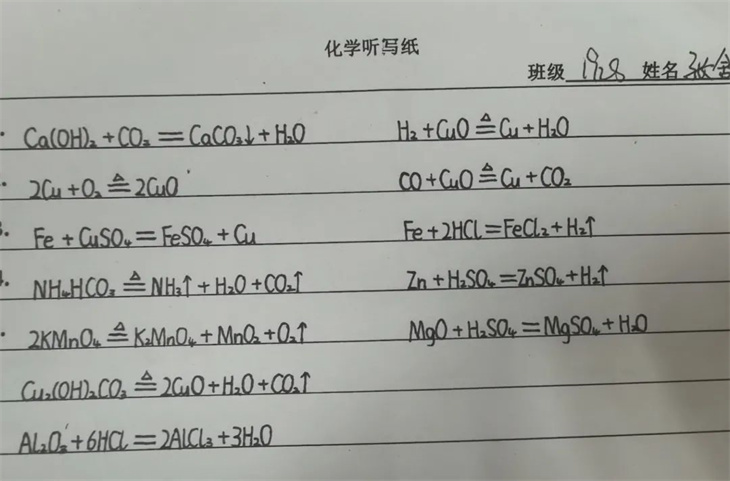 化学听写纸
班级 1928 姓名 张舍
Ca(OH)₂+CO₂=CaCO₃↓+H₂O H₂+CuO≜Cu+H₂O
2Cu+O₂≜2CuO CO+CuO≜Cu+CO₂
3. Fe+CuSO₄=FeSO₄+Cu Fe+2HCl=FeCl₂+H₂↑
4. NH₄HCO₃≜NH₃↑+H₂O+CO₂↑ Zn+H₂SO₄=ZnSO₄+H₂↑
2KMnO₄≜K₂MnO₄+MnO₂+O₂↑ MgO+H₂SO₄=MgSO₄+H₂O
Cu₂(OH)₂CO₃≜2CuO+H₂O+CO₂↑
Al₂O₃+6HCl=2AlCl₃+3H₂O